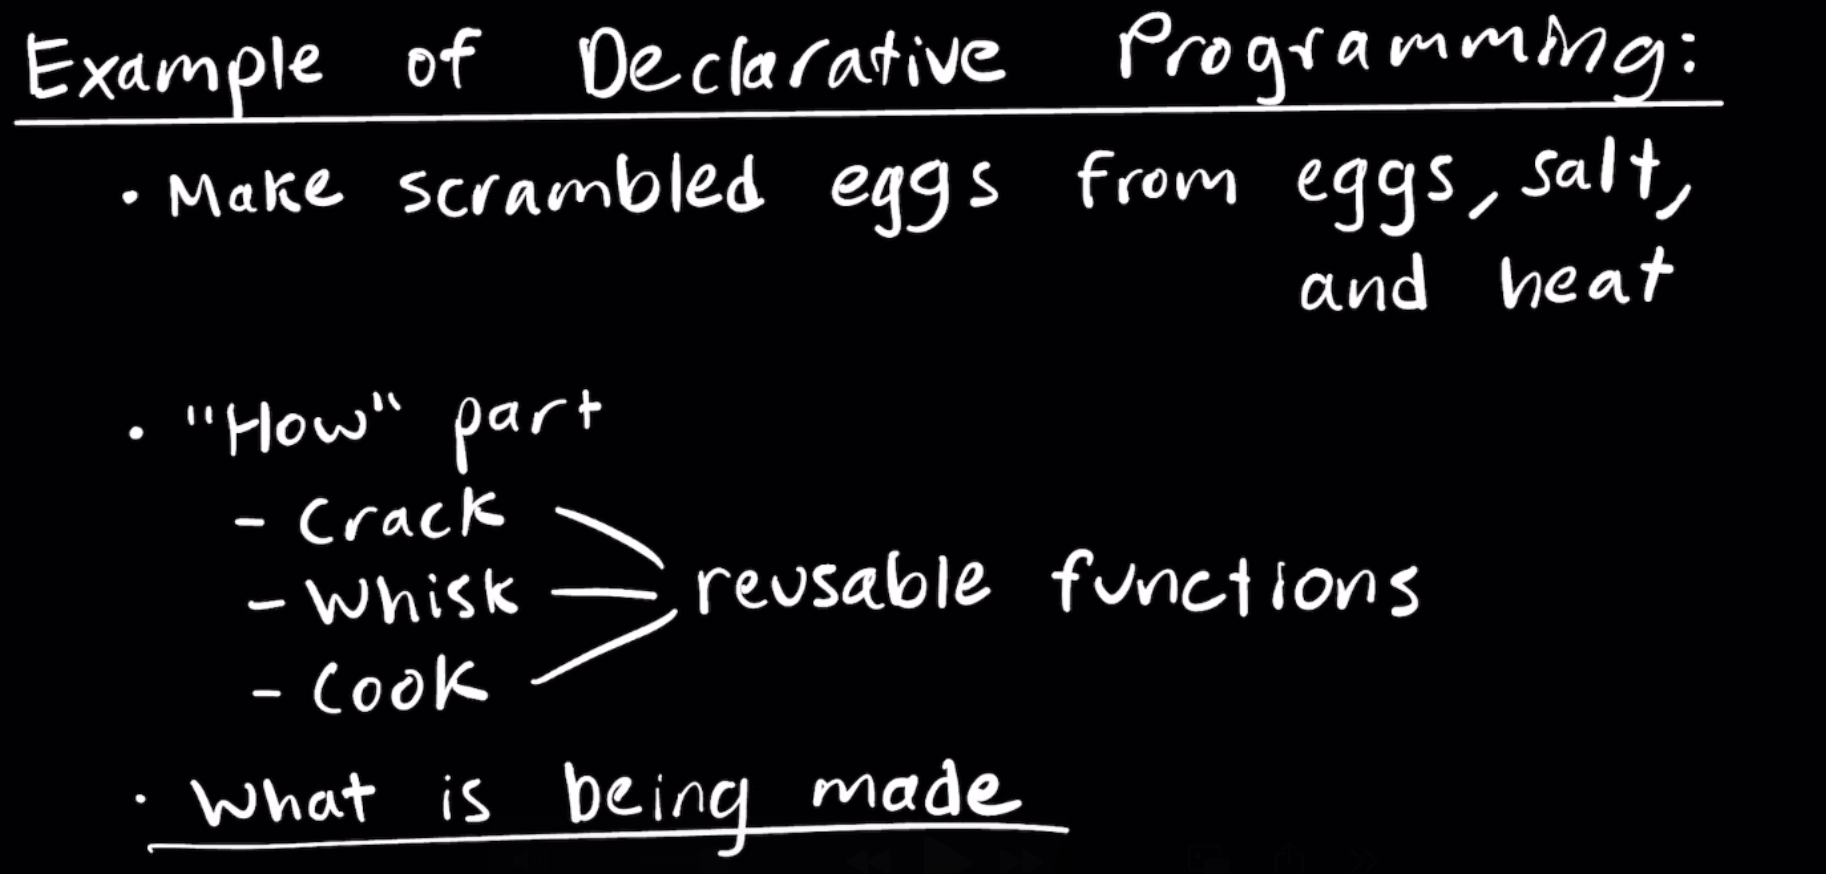 Example of Declarative Programming:
• Make scrambled eggs from eggs, salt,
and heat
• "How" part
- Crack
- Whisk reusable functions
- Cook
• What is being made